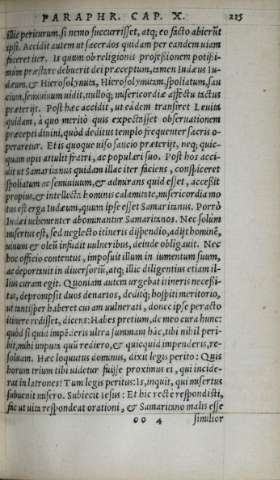 PARAPHR. CAP. X. 215
illic periturum, si nemo succurrisset, atq; eo facto abierũt
ipsi. Accidit autem ut sacerdos quidam per eandem uiam
faceret iter. Is quum ob religionis professionem potissi-
mum præstare debuerit dei præceptum, tamen Iudæus Iu-
dæum, & Hierosolymita, Hierosolymitam, spoliatum, sau
cium, semiuiuum uidit, nulloq; misericordiæ affectu tactus
præterijt. Post hæc accidit, ut eadem transiret Leuita
quidam, à quo meritò quis expectasset obseruationem
præcepti diuini, quòd deditus templo frequenter sacris o-
peraretur. Et is quoque uiso saucio præterijt, neq; quic-
quam opis attulit fratri, ac populari suo. Post hos acci-
dit ut Samaritanus quidam illac iter faciens, conspiceret
spoliatum ac semiuiuum, & admirans quid esset, accessit
propius, & intellecta hominis calamitate, misericordia mo
tus est erga Iudæum, quum ipse esset Samaritanus. Porrò
Iudæi uehementer abominantur Samaritanos. Nec solùm
misertus est, sed neglecto itineris dispendio, adijt hominẽ,
uinum & oleũ infudit uulneribus, deinde obligauit. Nec
hoc officio contentus, imposuit illum in iumentum suum,
ac deportauit in diuersoriũ, atq; illic diligentius etiam il-
lius curam egit. Quoniam autem urgebat itineris necessi-
tas, depromsit duos denarios, deditq; hospiti meritorio,
ut tantisper haberet curam uulnerati, donec ipse peracto
itinere redisset, dicens: Habes pretium, de meo cura hunc:
quòd si quid impẽderis ultra summam hãc, tibi nihil peri-
bit, mihi imputa quũ rediero, & quicquid impenderis, re-
soluam. Hæc loquutus dominus, dixit legis perito: Quis
horum trium tibi uidetur fuisse proximus ei, qui incide-
rat in latrones? Tum legis peritus: Is, inquit, qui misertus
subuenit misero. Subiecit Iesus: Et hic rectè respondisti,
fac ut uita respondeat orationi, & Samaritano malis esse
oo 4 similior